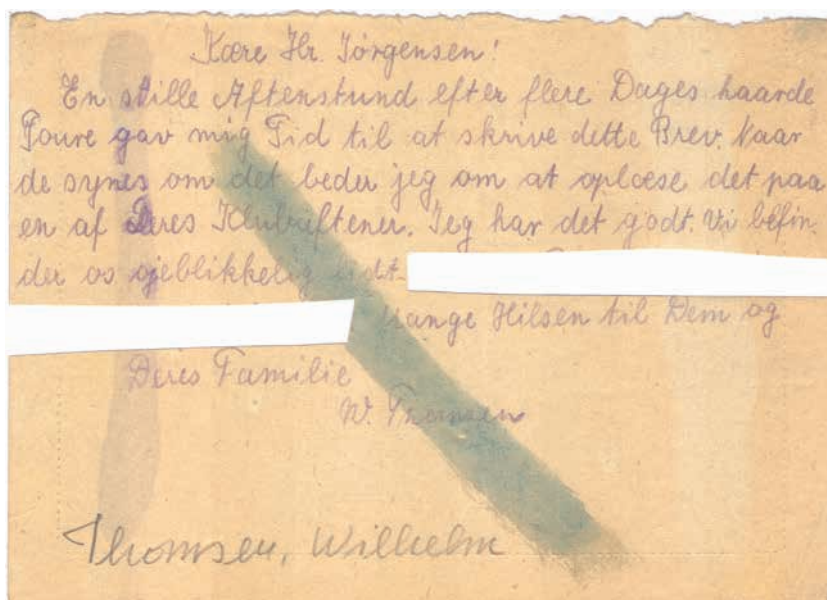 Kære Hr. Jörgensen!
En stille Aftenstund efter flere Dages haarde
Toure gav mig Tid til at skrive dette Brev. Naar
de synes om det beder jeg om at oplæse det paa
en af Deres Klubaftener. Jeg har det godt. Vi befin-
der os ojeblikkelig
Mange Hilsen til Dem og
Deres Familie
W. Thomsen
Thomsen, Wilhelm